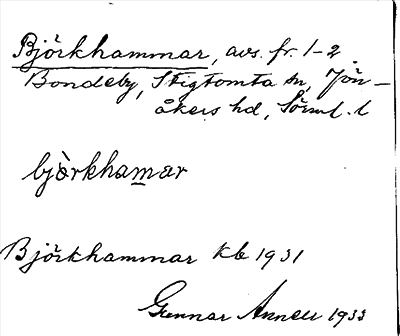 Björkhammar, avs. fr. 1-2
Bondeby, Stigtomta sn, Jön-
åkers hd, Sörml. l
bjòrkhamar
Björkhammar kb 1931
Gunnar Annell 1933